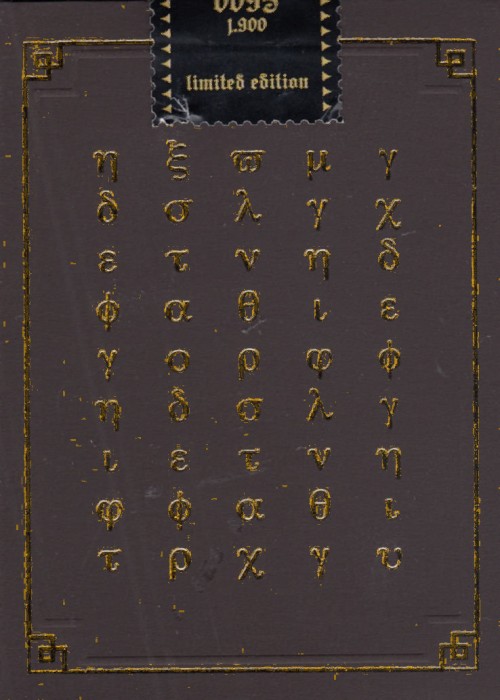 1.900
limited edition
η ξ ϖ μ γ
δ σ λ γ χ
ε τ ν η δ
φ α θ ι ε
γ ο ρ φ ϕ
η δ σ λ γ
ι ε τ ν η
φ ϕ α θ ι
τ ρ χ γ υ